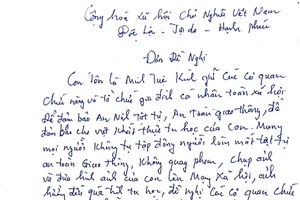 Cộng hoà xã hội Chủ Nghĩa Việt Nam
Độc Lập - Tự do - Hạnh phúc
Đơn Đề Nghị
Con tên là Minh Tuệ Kính gửi Các cơ quan
chức năng và tổ chức gia đình cá nhân toàn xã hội
Để đảm bảo An Ninh trật tự, An Toàn giao thông, để
đảm bảo cho việc khất thực tu học của con. Mong
mọi người Không tụ tập đông người làm mất trật tự
an toàn Giao thông, Không quay phim, chụp ảnh
và đưa hình ảnh của con lên Mạng Xã hội, ảnh
hưởng đến quá trình tu học, đề nghị Các cơ quan chức